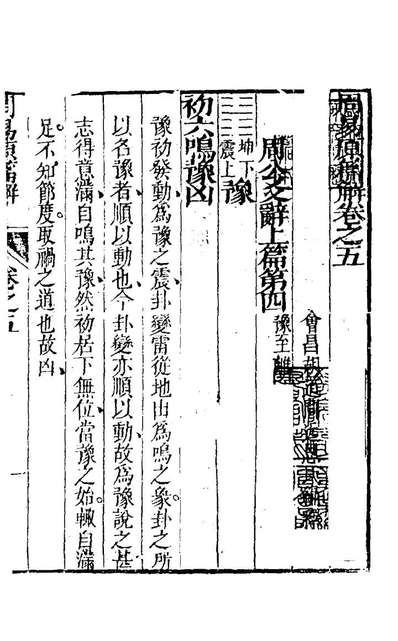 周易原旨解卷之五
會昌胡
周公爻辭上篇第四
豫至離
坤下震上豫
初六鳴豫凶
豫初發動為豫之震卦變雷從地出為鳴之象卦之所
以名豫者順以動也今卦變亦順以動故為豫說之甚
志得意滿自鳴其豫然初居下無位當豫之始輙自滿
足不知節度取禍之道也故凶
卷之五